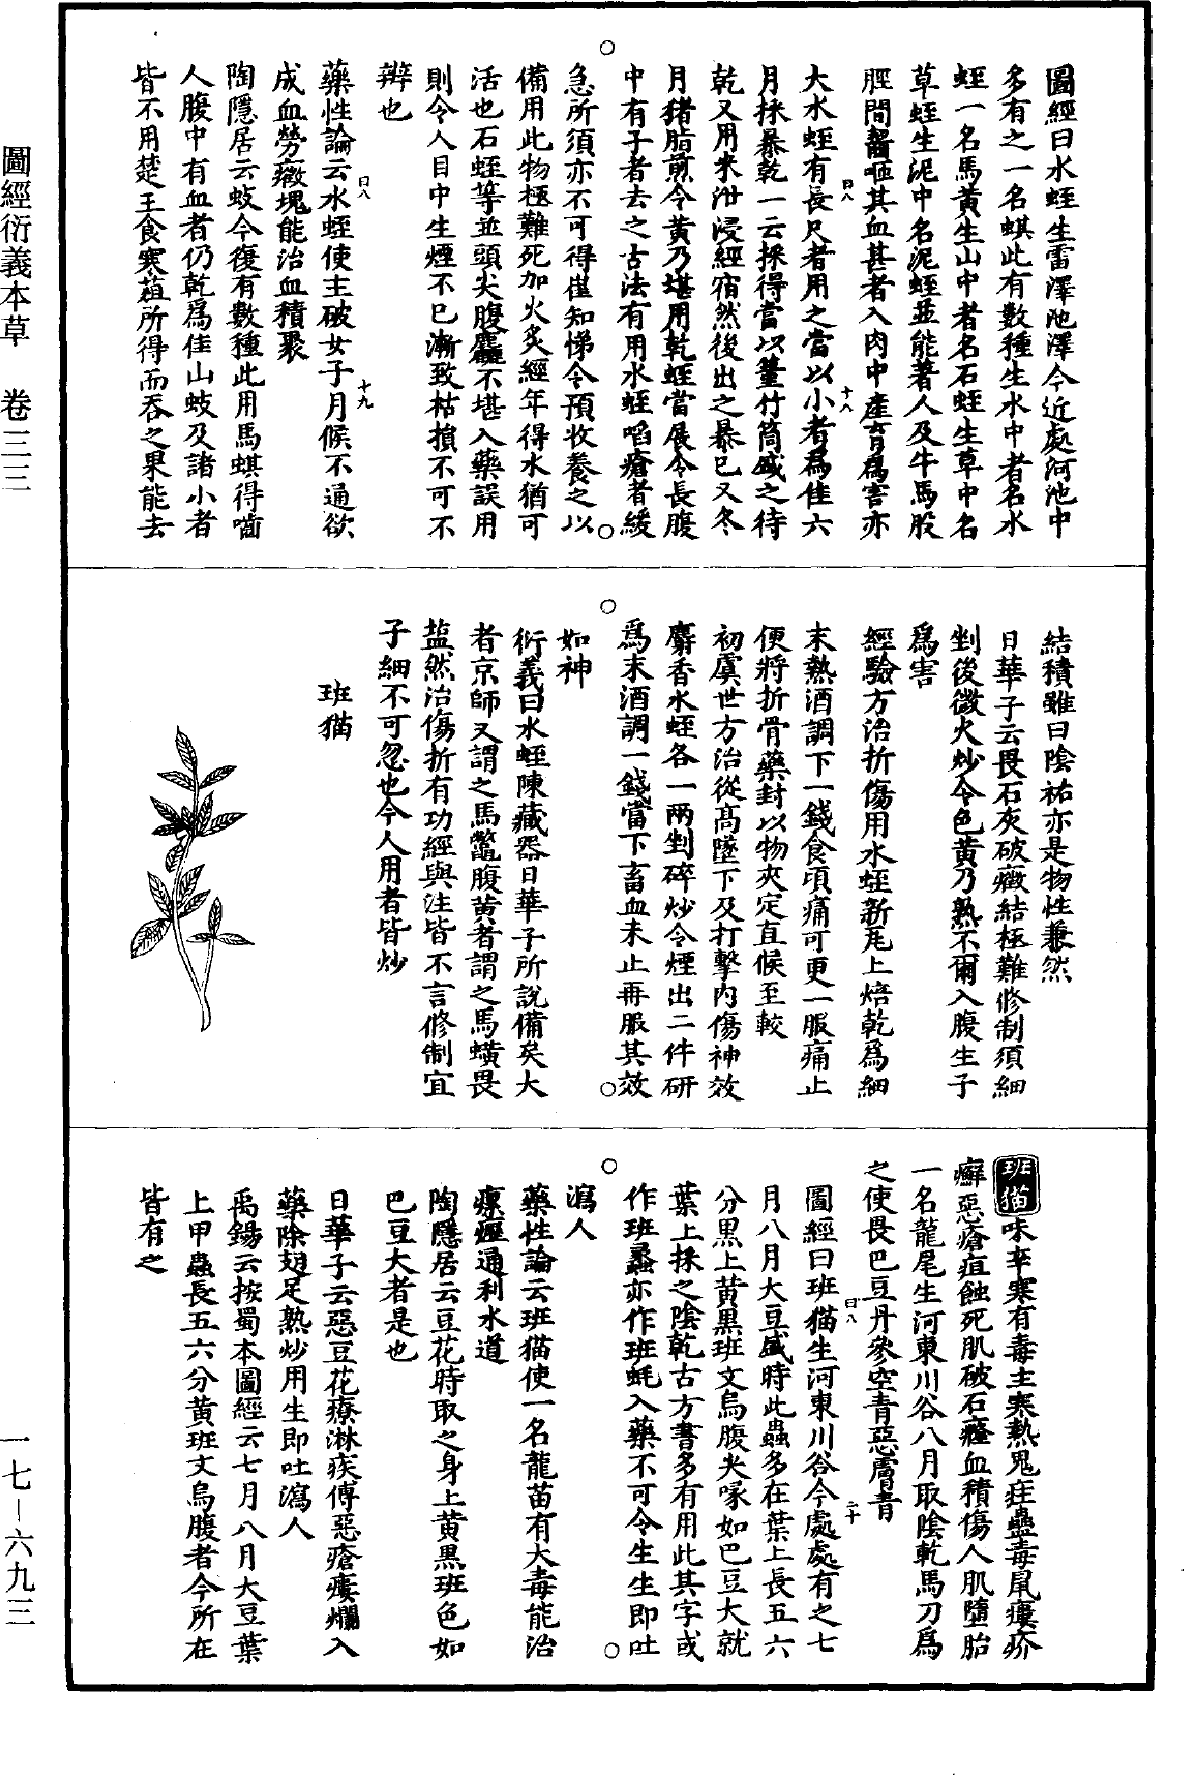 圖經曰水蛭生雷澤池澤今近處河池中
多有之一名蜞此有數種生水中者名水
蛭一名馬黃生山中者名石蛭生草中名
草蛭生泥中名泥蛭並能著人及牛馬股
脛間齧咂其血甚者入肉中產育爲害亦
曰八
十八
大水蛭有長尺者用之當以小者爲佳六
月採暴乾一云採得當以䈽竹筒盛之待
乾又用米泔浸經宿然後出之暴已又冬
月猪脂煎令黃乃堪用乾蛭當展令長腹
中有子者去之古法有用水蛭啗瘡者緩
急所須亦不可得崔知悌令預收養之以
備用此物極難死加火炙經年得水猶可
活也石蛭等並頭尖腹麤不堪入藥誤用
則令人目中生煙不已漸致枯損不可不
辨也
曰八
十九
藥性論云水蛭使主破女子月候不通欲
成血勞癥塊能治血積聚
陶隱居云蚑今復有數種此用馬蜞得嚙
人腹中有血者仍乾爲佳山蚑及諸小者
皆不用楚王食寒葅所得而吞之果能去
結積雖曰陰祐亦是物性兼然
日華子云畏石灰破癥結極難修制須細
剉後微火炒令色黃乃熟不爾入腹生子
爲害
經驗方治折傷用水蛭新瓦上焙乾爲細
末熱酒調下一錢食頃痛可更一服痛止
便將折骨藥封以物夾定直候至較
初虞世方治從高墜下及打擊內傷神效
麝香水蛭各一兩剉碎炒令煙出二件研
爲末酒調一錢當下畜血未止再服其效
如神
衍義曰水蛭陳藏器日華子所說備矣大
者京師又謂之馬鱉腹黃者謂之馬蟥畏
鹽然治傷折有功經與注皆不言修制宜
子細不可忽也今人用者皆炒
班猫
班猫味辛寒有毒主寒熱鬼疰蠱毒鼠瘻疥
癬惡瘡疽蝕死肌破石癃血積傷人肌墮胎
一名龍尾生河東川谷八月取陰乾馬刀爲
之使畏巴豆丹參空青惡膚青
曰八
二十
圖經曰班猫生河東川谷今處處有之七
月八月大豆盛時此蟲多在葉上長五六
分黑上黃黑班文烏腹尖喙如巴豆大就
葉上採之陰乾古方書多有用此其字或
作班蝥亦作班蚝入藥不可令生生即吐
瀉人
藥性論云班猫使一名龍苗有大毒能治
瘰癧通利水道
陶隱居云豆花時取之身上黃黑班色如
巴豆大者是也
日華子云惡豆花療淋疾傅惡瘡瘻爛入
藥除翅足熟炒用生即吐瀉人
禹錫云按蜀本圖經云七月八月大豆葉
上甲蟲長五六分黃班文烏腹者今所在
皆有之
圖經衍義本草　卷三三
一七－六九三